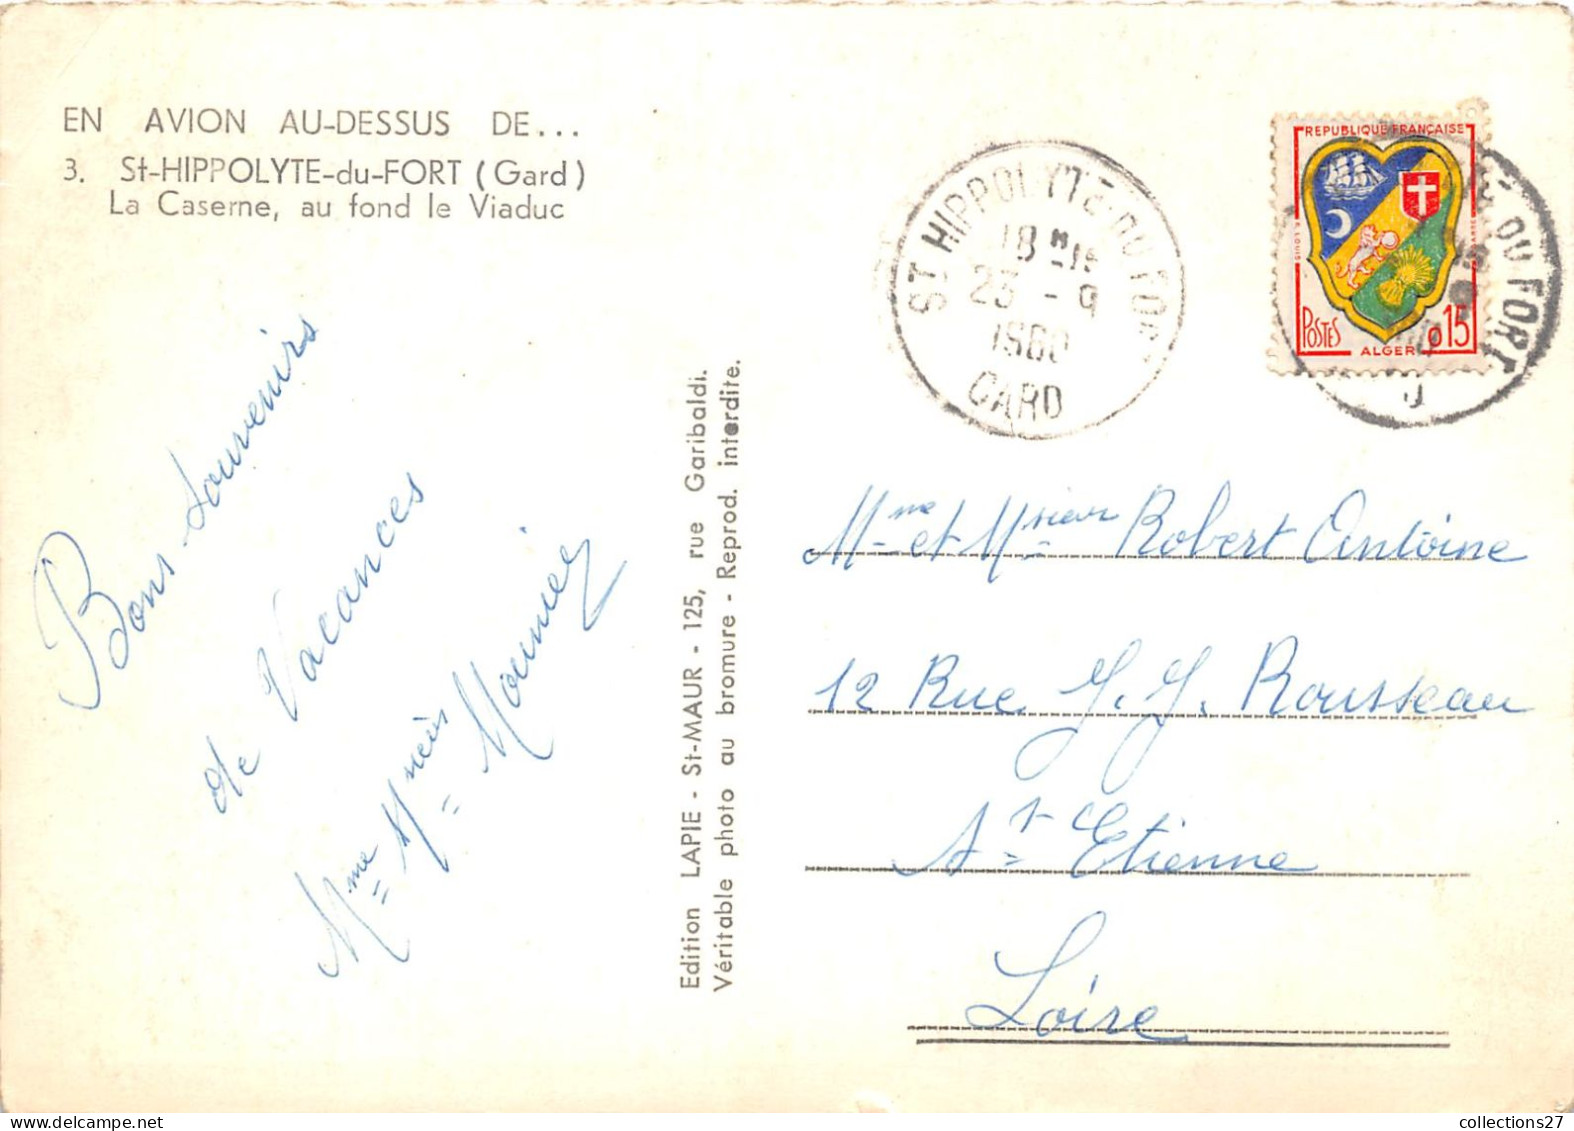 EN AVION AU-DESSUS DE...
3. St-HIPPOLYTE-du-FORT (Gard)
La Caserne, au fond le Viaduc
Bons souvenirs
de Vacances
Mme Mr Mounier
Edition LAPIE - St-MAUR - 125, rue Garibaldi.
Véritable photo au bromure - Reprod. interdite.
ST HIPPOLYTE-DU FORT
18H
23 - 9
1960
GARD
REPUBLIQUE FRANÇAISE
POSTES
ALGER
0,15
DU FORT
Mme et Msieur Robert Antoine
12 Rue J. J. Rousseau
St Etienne
Loire
collections27